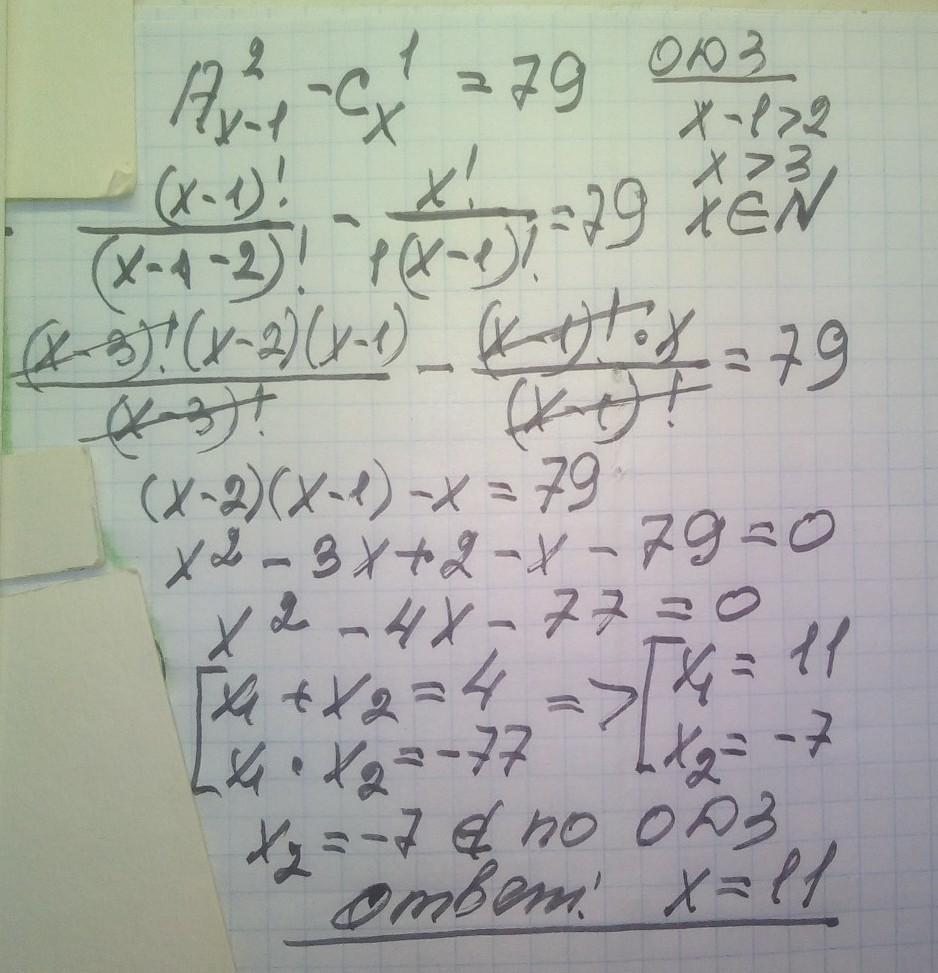 A²ₓ₋₁ - C¹ₓ = 79
ОДЗ
x - 1 > 2
x > 3
x ∈ N
(x-1)! / (x-1-2)! - x! / 1(x-1)! = 79
(x-3)!(x-2)(x-1) / (x-3)! - (x-1)!·x / (x-1)! = 79
(x-2)(x-1) - x = 79
x² - 3x + 2 - x - 79 = 0
x² - 4x - 77 = 0
[x₁ + x₂ = 4 => [x₁ = 11
[x₁ · x₂ = -77 [x₂ = -7
x₂ = -7 ∉ по ОДЗ
ответ: x = 11